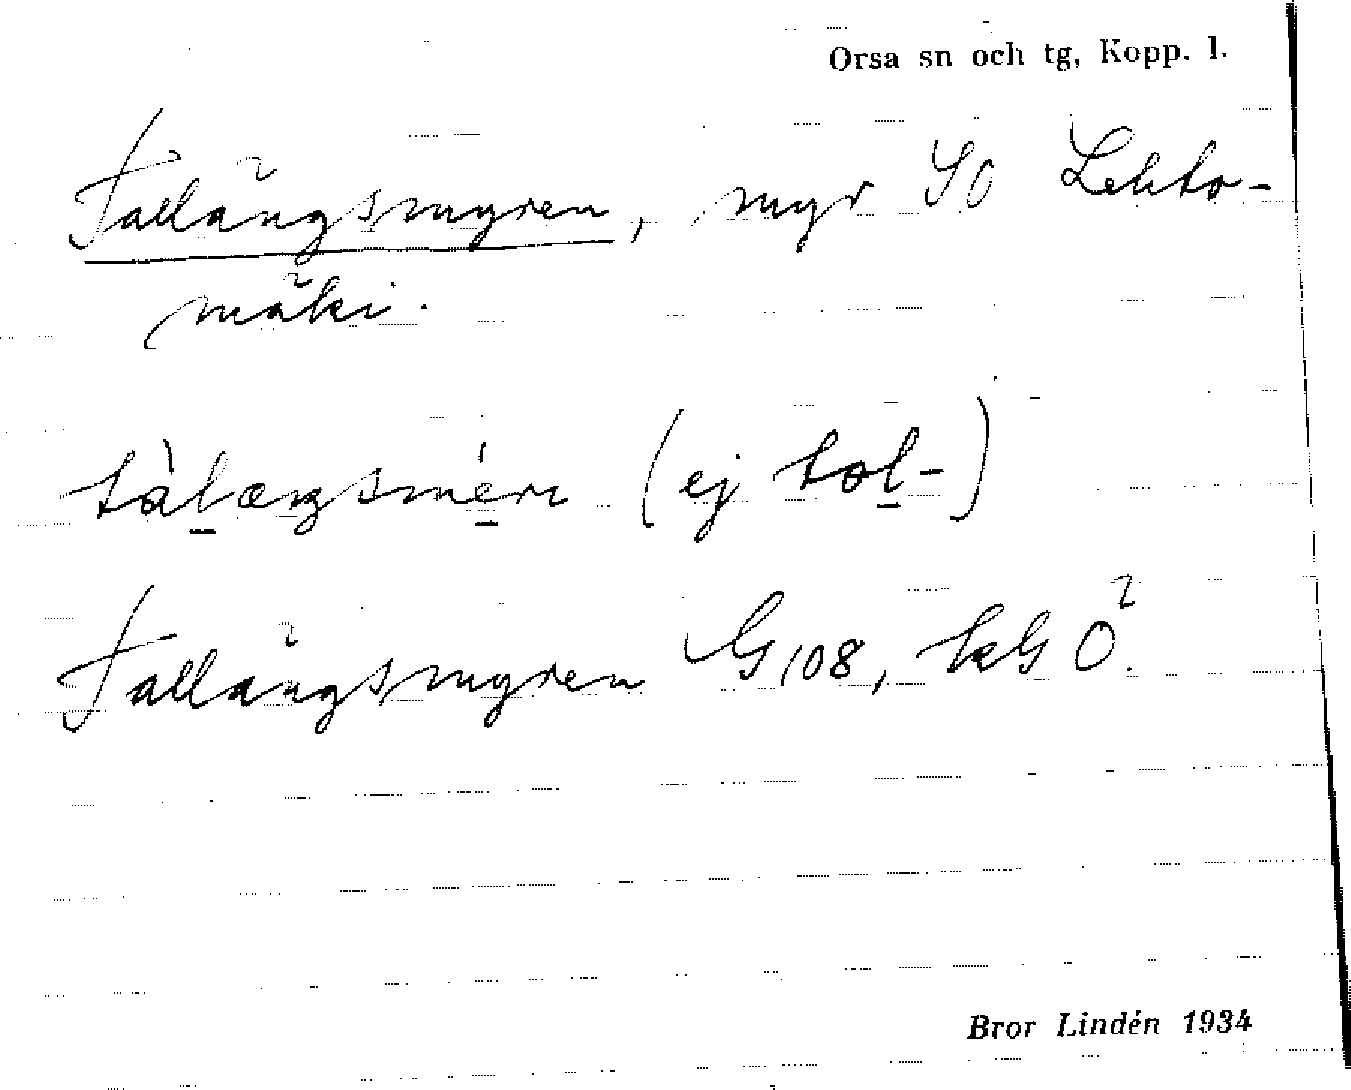 Orsa sn och tg, Kopp. l.
Tallängsmyren, myr SO Lehto-
mäki.
tàlængsmérn (ej tol-)
Tallängsmyren G108, kG Ö.
Bror Lindén 1934